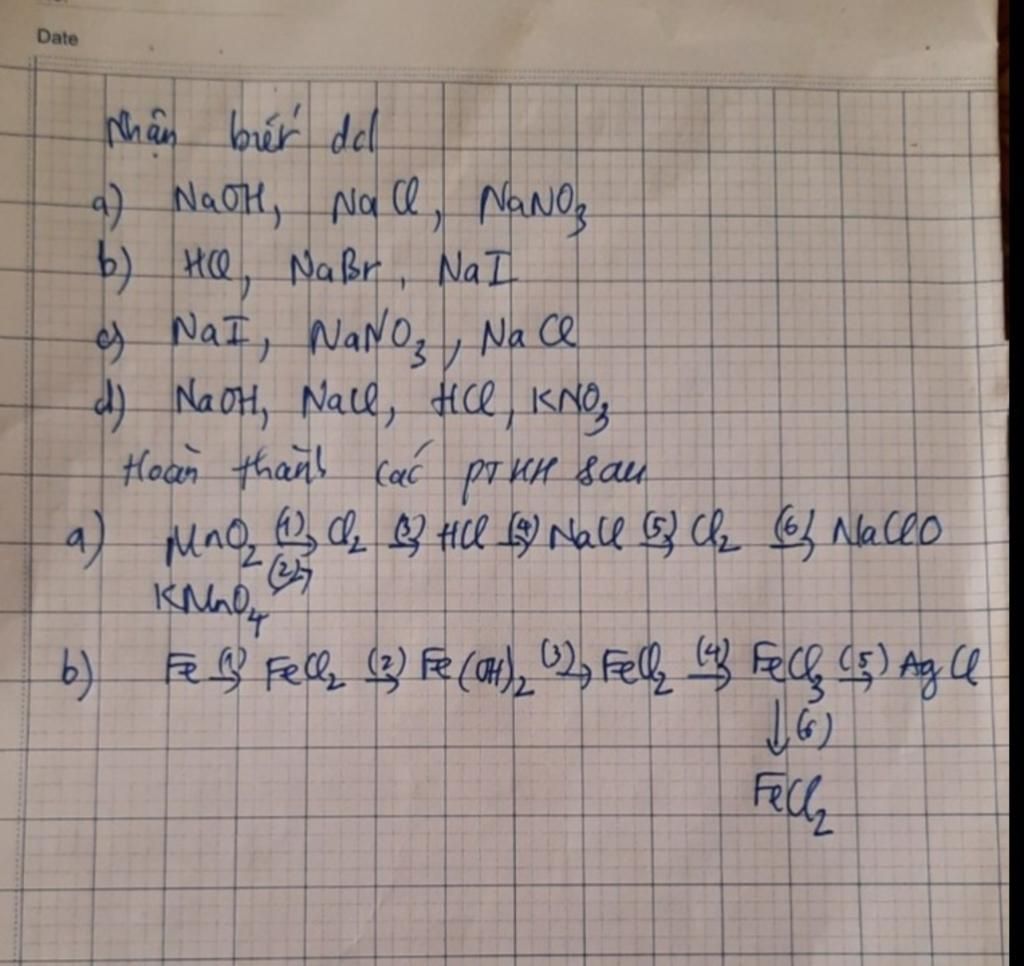 Date
Nhận biết dd
a) NaOH, NaCl, NaNO3
b) HCl, NaBr, NaI
c) NaI, NaNO3, NaCl
d) NaOH, NaCl, HCl, KNO3
Hoàn thành các PTHH sau
a) MnO2 (1)→ Cl2 (3)→ HCl (4)→ NaCl (5)→ Cl2 (6)→ NaClO
KMnO4 (2)→
b) Fe (1)→ FeCl2 (2)→ Fe(OH)2 (3)→ FeCl2 (4)→ FeCl3 (5)→ AgCl
↓(6)
FeCl2